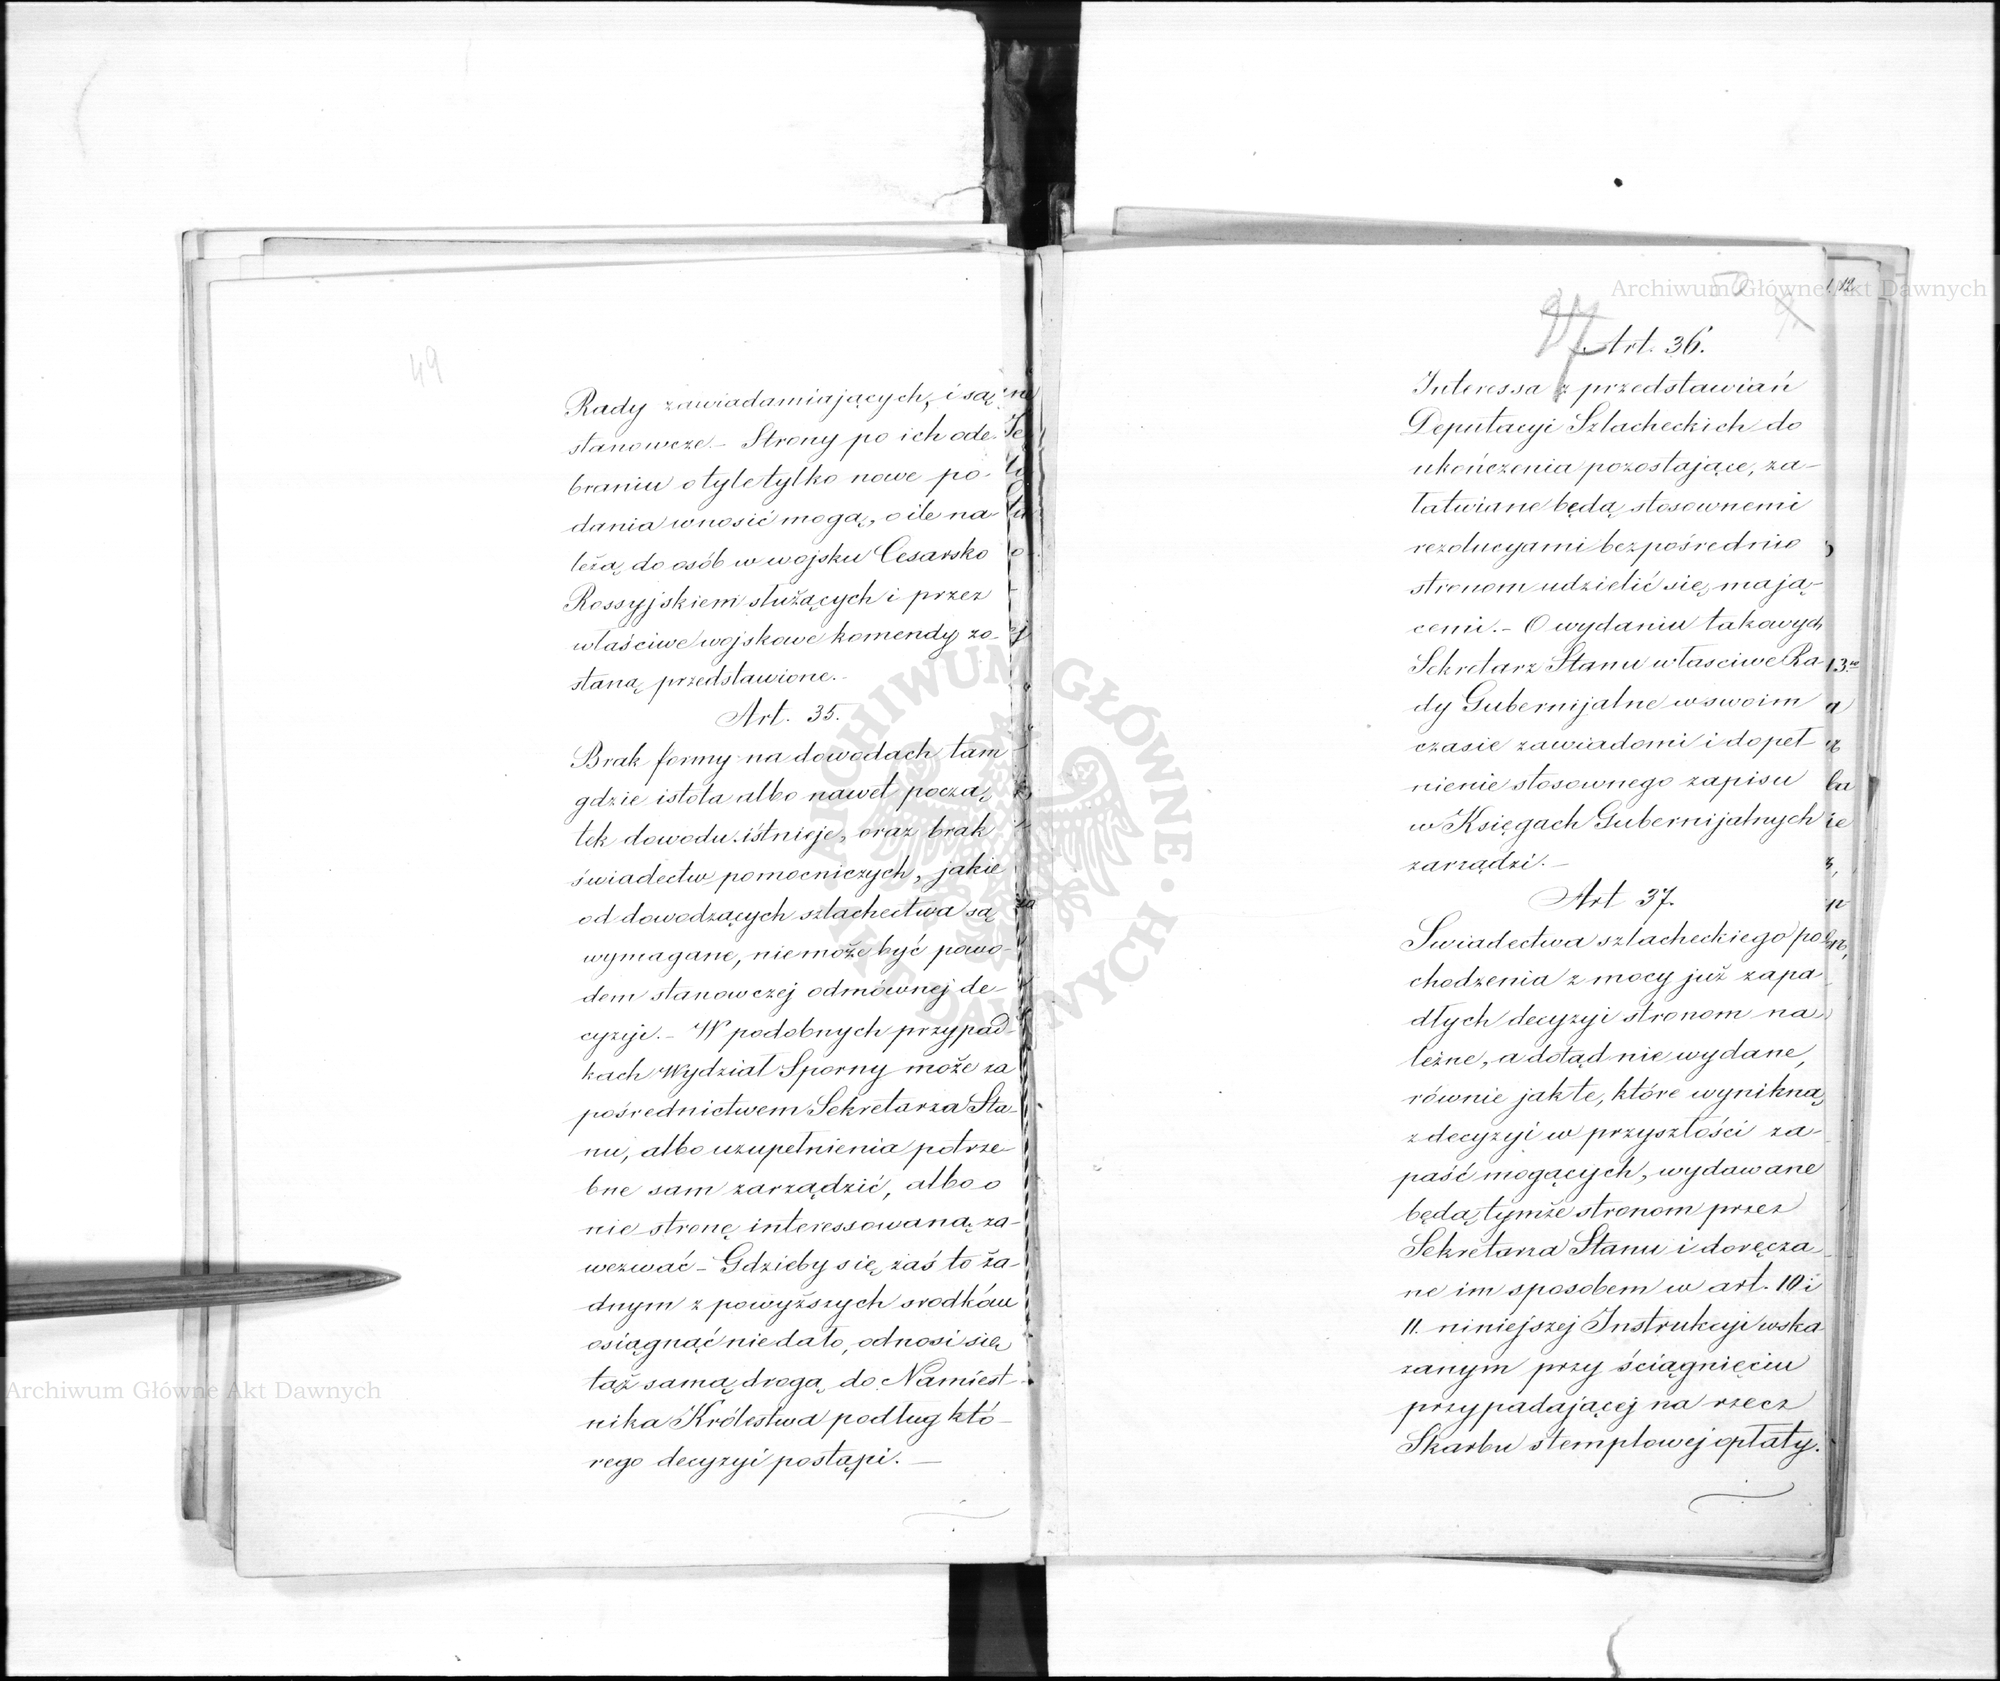 49
Rady zawiadamiających, i są
stanowcze. – Strony po ich ode-
braniu o tyle tylko nowe po-
dania wnosić mogą, o ile na-
leżą do osób w wojsku Cesarsko
Rossyjskiem służących i przez
właściwe wojskowe komendy zo-
staną przedstawione. –
Art. 35.
Brak formy na dowodach tam
gdzie istota albo nawet począ
tek dowodu istnieje, oraz brak
świadectw pomocniczych, jakie
od dowodzących szlachectwa są
wymagane, nie może być powo-
dem stanowczej odmównej de-
cyzyi. – W podobnych przypad-
kach Wydział Sporny może za
pośrednictwem Sekretarza Sta-
nu, albo uzupełnienia potrze-
bne sam zarządzić, albo o
nie stronę interessowaną za-
wezwać – Gdzieby się zaś to ża-
dnym z powyższych srodków
osiągnąć nie dało, odnosi się
taż samą drogą do Namiest-
nika Królestwa podług któ-
rego decyzyi postąpi. —
50
97
Art. 36.
Interessa z przedstawiań
Deputacyi Szlacheckich do
ukończenia pozostające, za-
łatwiane będą stosownemi
rezolucyami bezpośrednio
stronom udzielić się mają-
cemi. – O wydaniu takowych
Sekretarz Stanu właściwe Ra-
dy Gubernijalne w swoim
czasie zawiadomi i dopeł
nienie stosownego zapisu
w Księgach Gubernijalnych
zarządzi. –
Art 37.
Swiadectwa szlacheckiego po
chodzenia z mocy już zapa
dłych decyzyi stronom na-
leżne, a dotąd nie wydane,
równie jak te, które wynikną
z decyzyi w przyszłości za-
paść mogących, wydawane
będą tymże stronom przez
Sekretarza Stanu i doręcza-
ne im sposobem w art. 10 i
11. niniejszej Instrukcyi wska
zanym przy ściągnięciu
przypadającej na rzecz
Skarbu stemplowej opłaty.
Archiwum Główne Akt Dawnych
Archiwum Główne Akt Dawnych
ARCHIWUM GŁÓWNE · AKT DAWNYCH ·